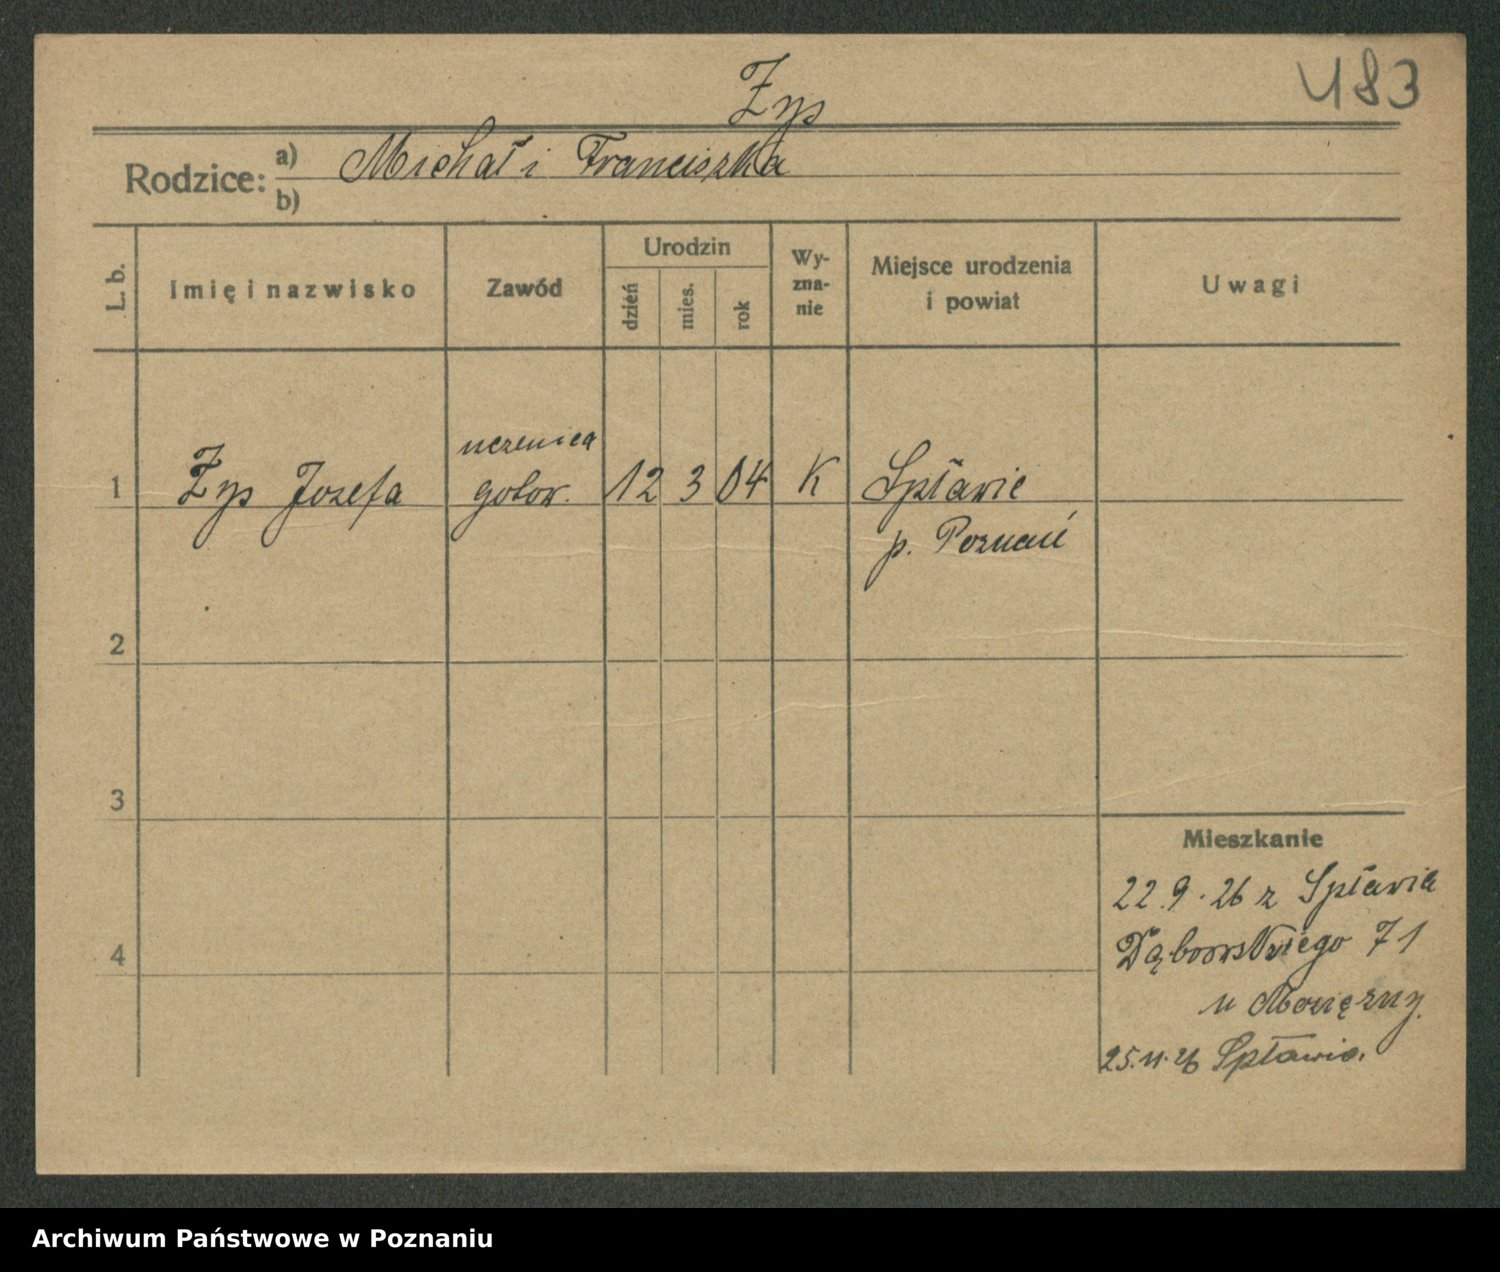 483
Żys
Rodzice: a) Michał i Franciszka
b)
L. b.
Imię i nazwisko
Zawód
Urodzin
dzień
mies.
rok
Wy-
zna-
nie
Miejsce urodzenia
i powiat
Uwagi
1 Żys Józefa uczenica
gotow. 12 3 04 K Spławie
p. Poznań
2
3
4
Mieszkanie
22.9.26 z Spławia
Dąbrowskiego 71
u
25.11.26 Spławie.
Archiwum Państwowe w Poznaniu